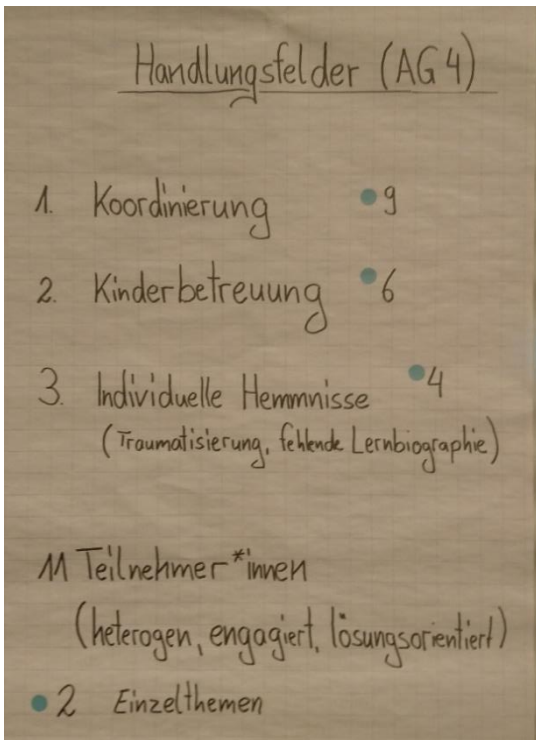 Handlungsfelder (AG 4)
1. Koordinierung 9
2. Kinderbetreuung 6
3. Individuelle Hemmnisse 4
(Traumatisierung, fehlende Lernbiographie)
11 Teilnehmer*innen
(heterogen, engagiert, lösungsorientiert)
2 Einzelthemen